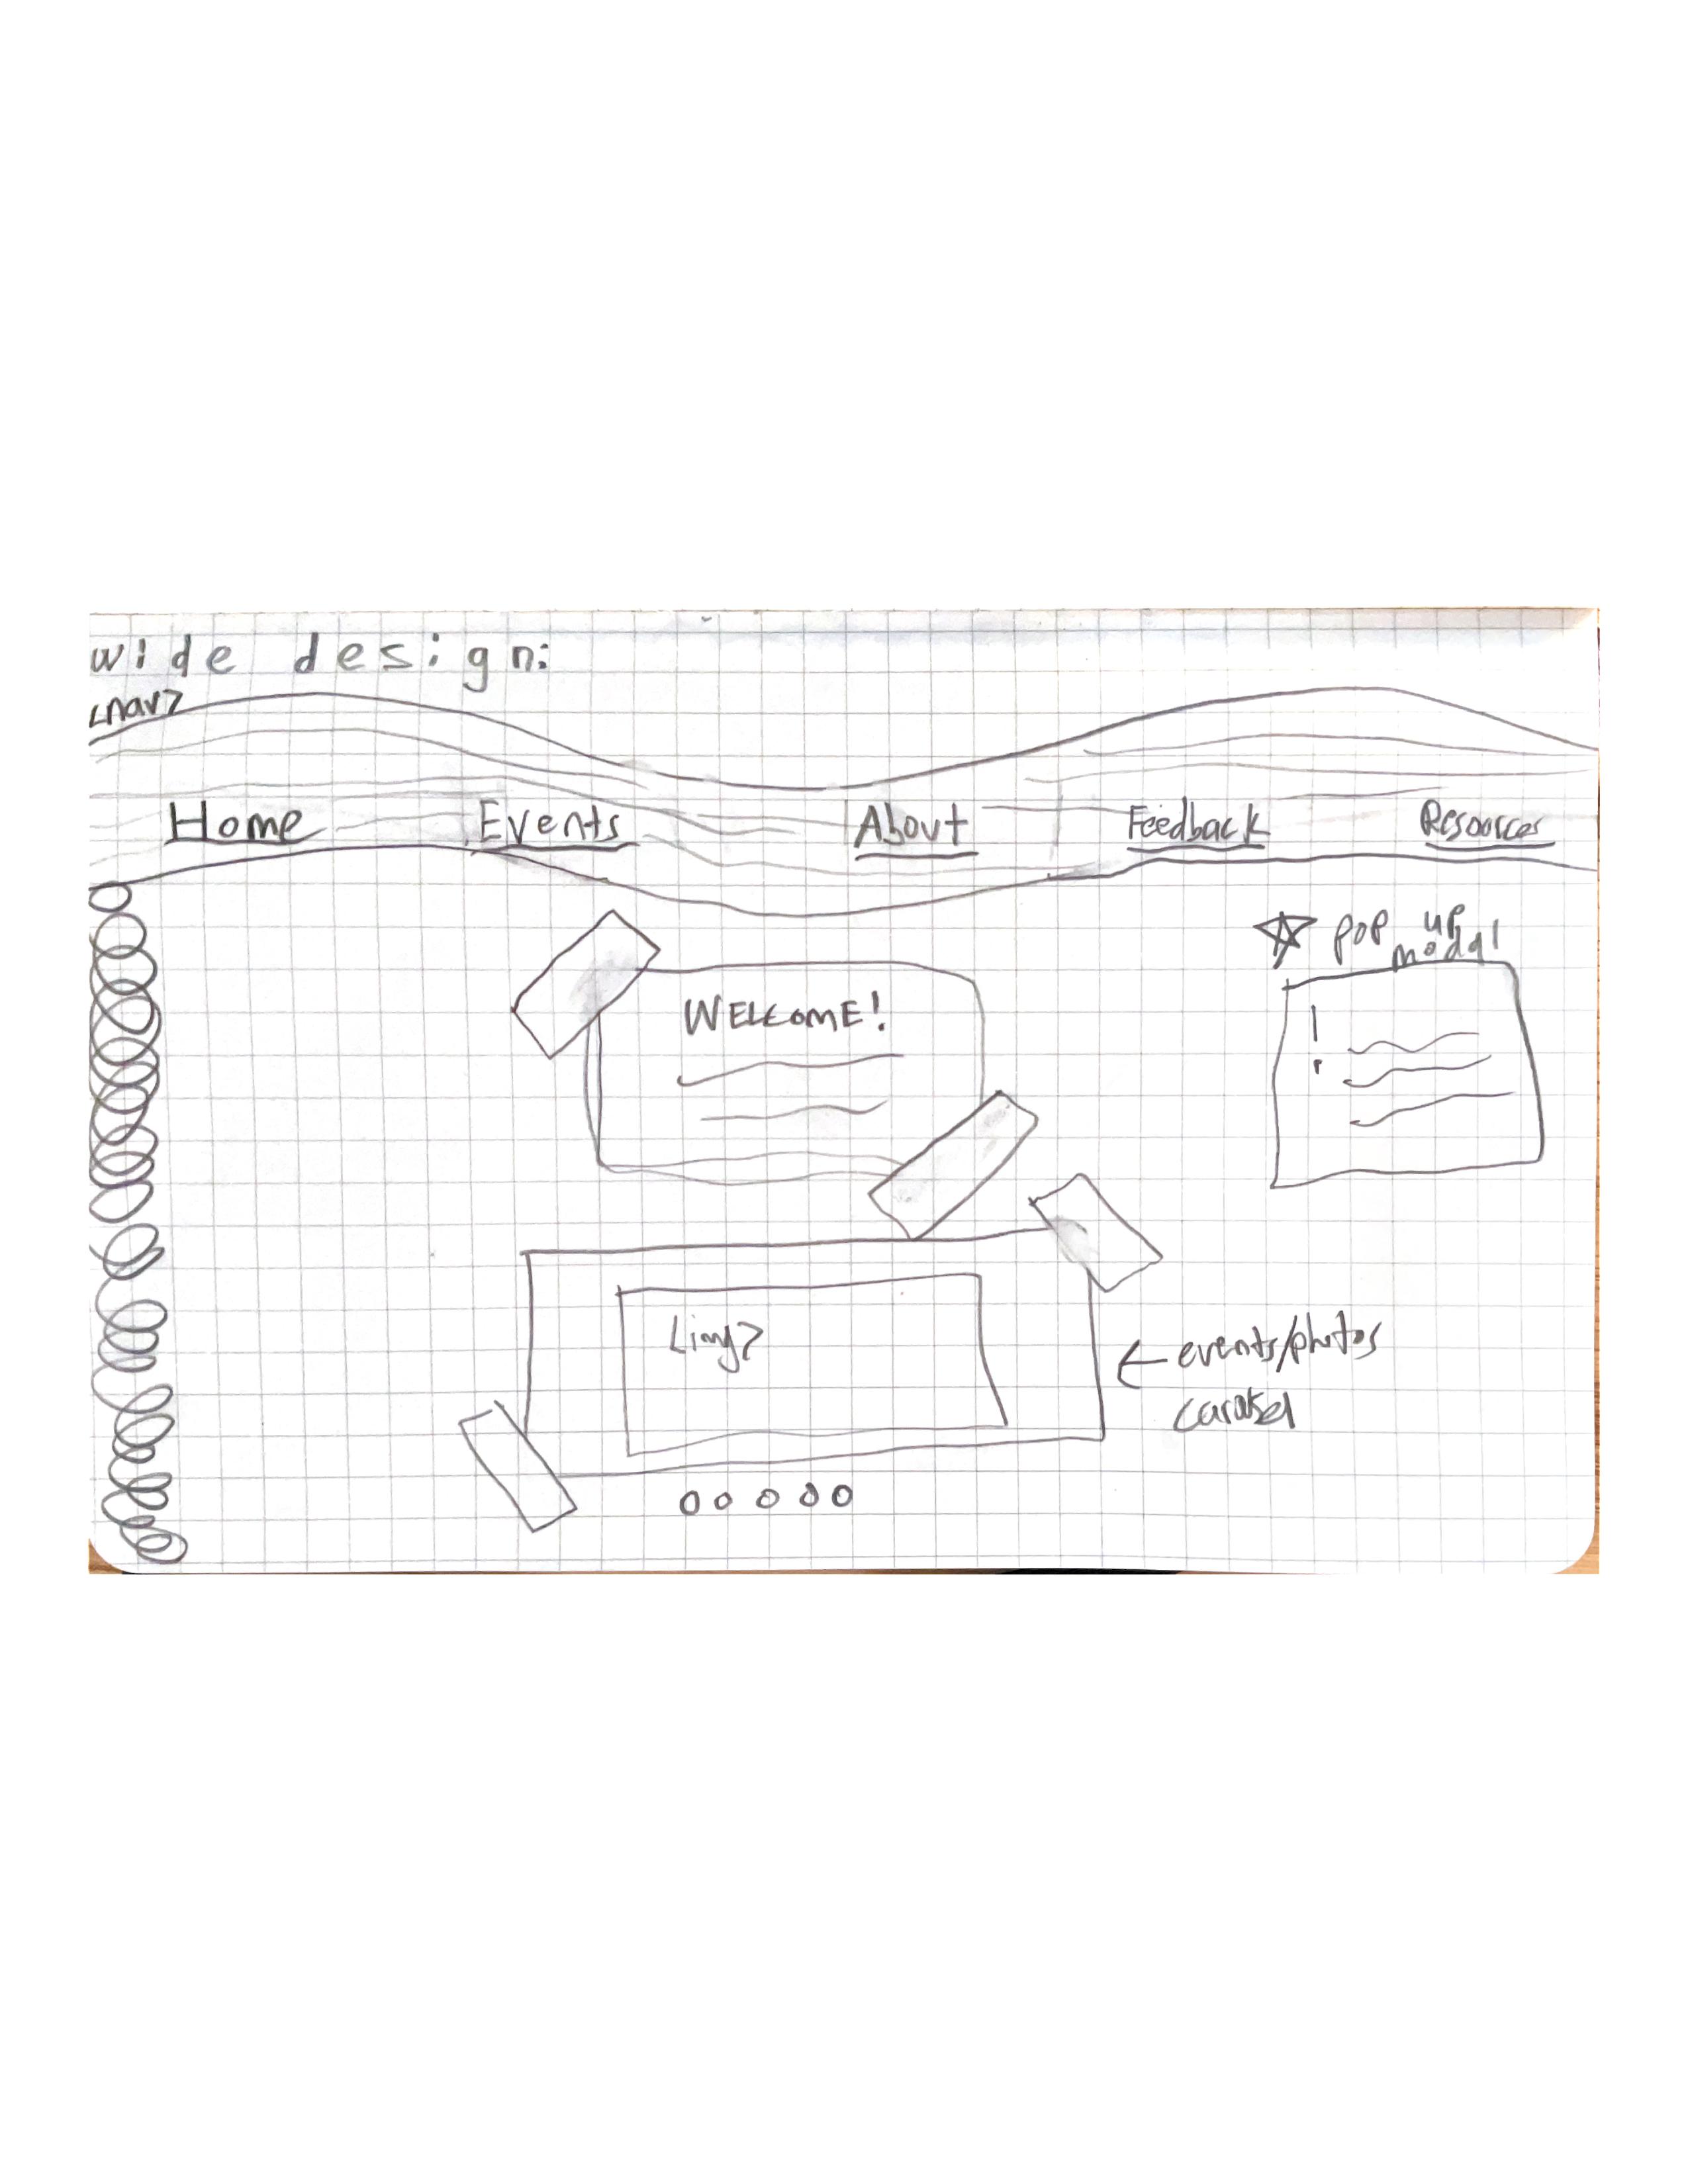 wide design:
<nav>
Home Events About Feedback Resources
☆ pop up
modal
WELCOME!
!
<img>
← events/photos
carousel